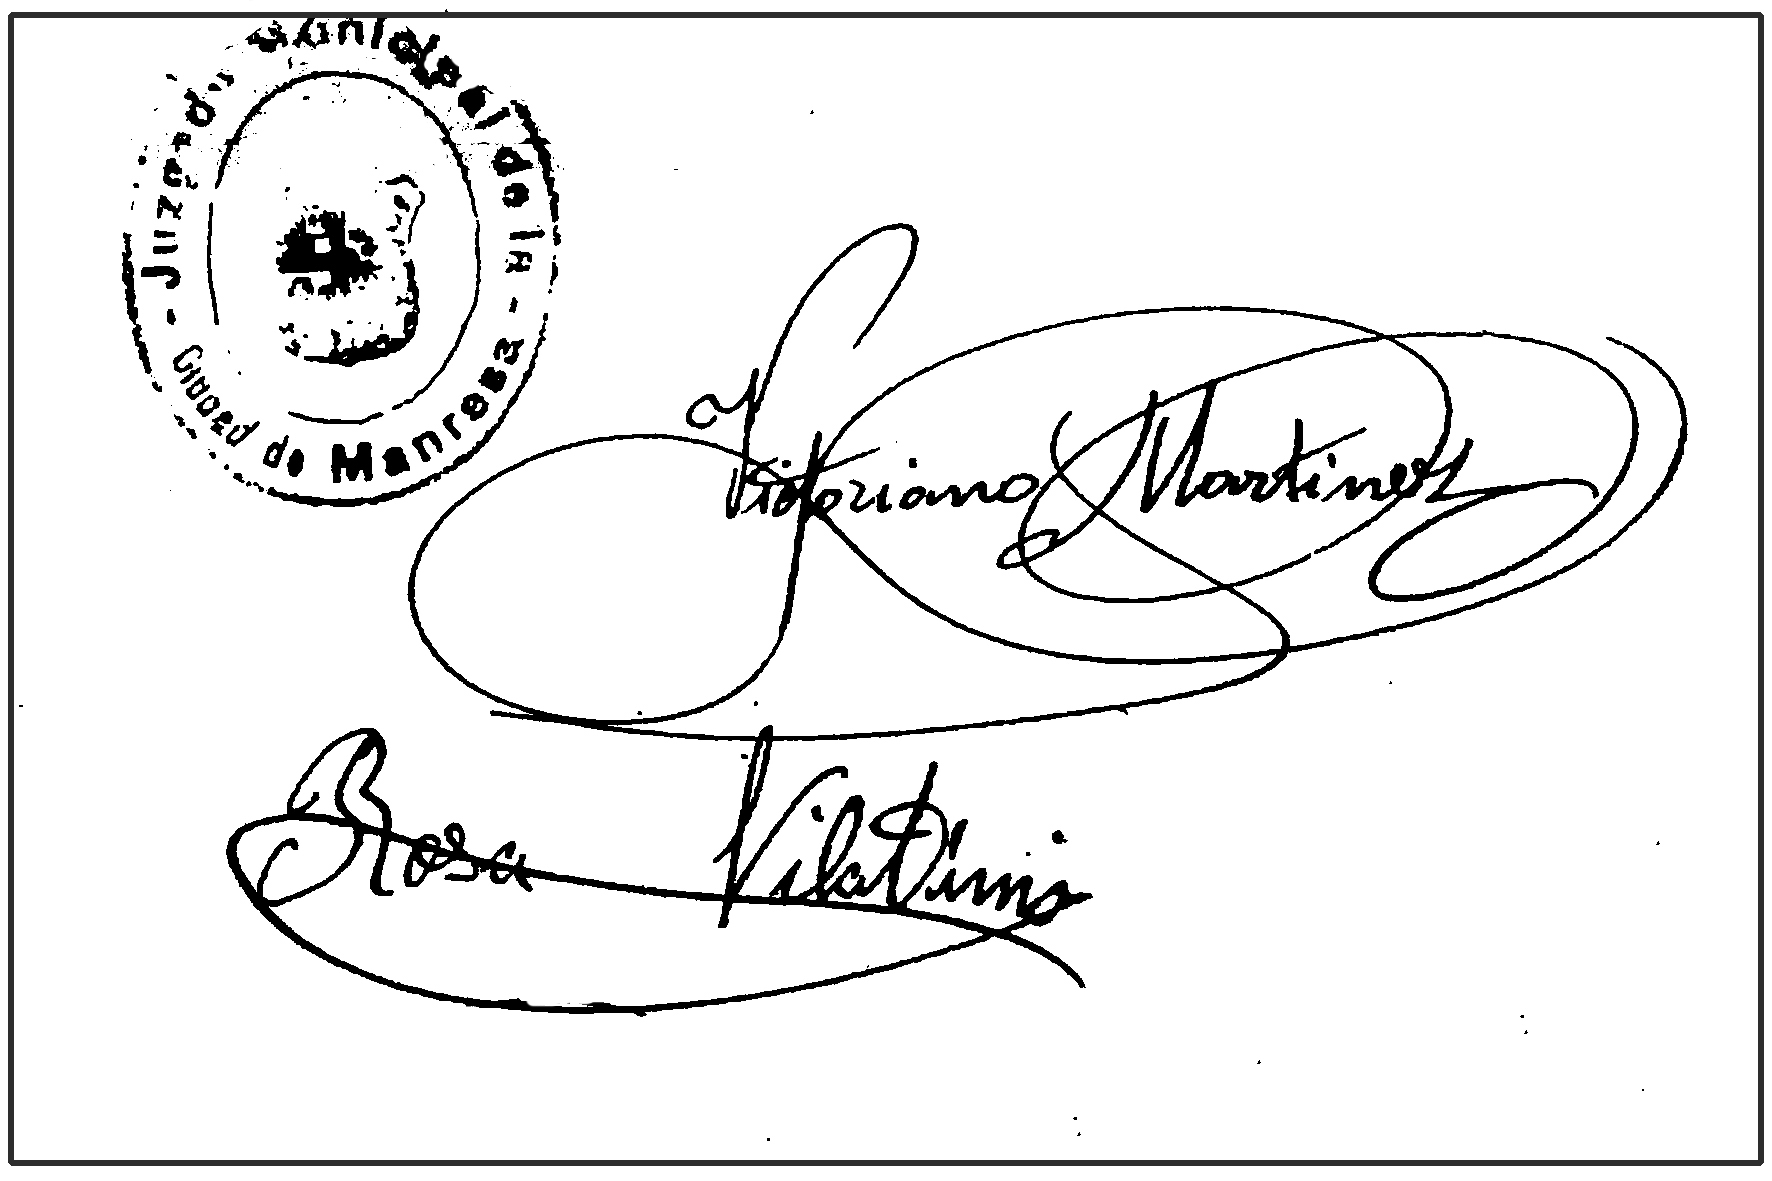 Juzgado Municipal de la
Ciudad de Manresa
Victoriano Martinez
Rosa Viladims